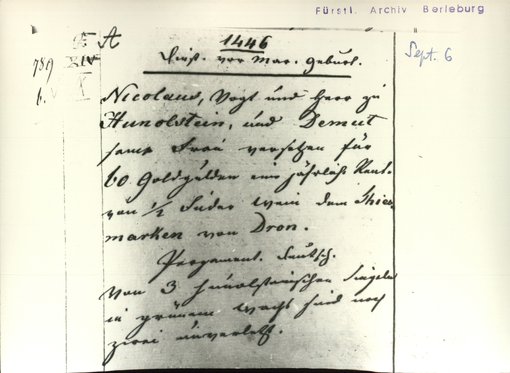 Fürstl. Archiv Berleburg
A
1446
Sept. 6
Dinst. vor Mar. Geburt.
789
XIV
6.
Nicolaus, Vogt und Herr zu
Hunolstein, und Demut
seine Frau versetzen für
60 Goldgulden eine jährliche Rente
von 1/2 Fuder Wein dem
marken von Dron.
Pergament. Deutsch.
Von 3 Hunolsteinischen Siegeln
in grünem Wachs sind noch
zwei unverletzt.